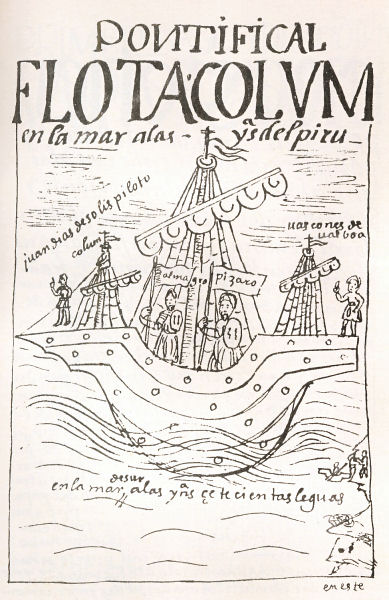 PONTIFICAL
FLOTA COLVM
en la mar a las yªs del piru
juan dias de solis piloto
colum
uascones de
ualboa
almagro
pizaro
de sur
en la mar a las yªs çetecientas leguas
en este